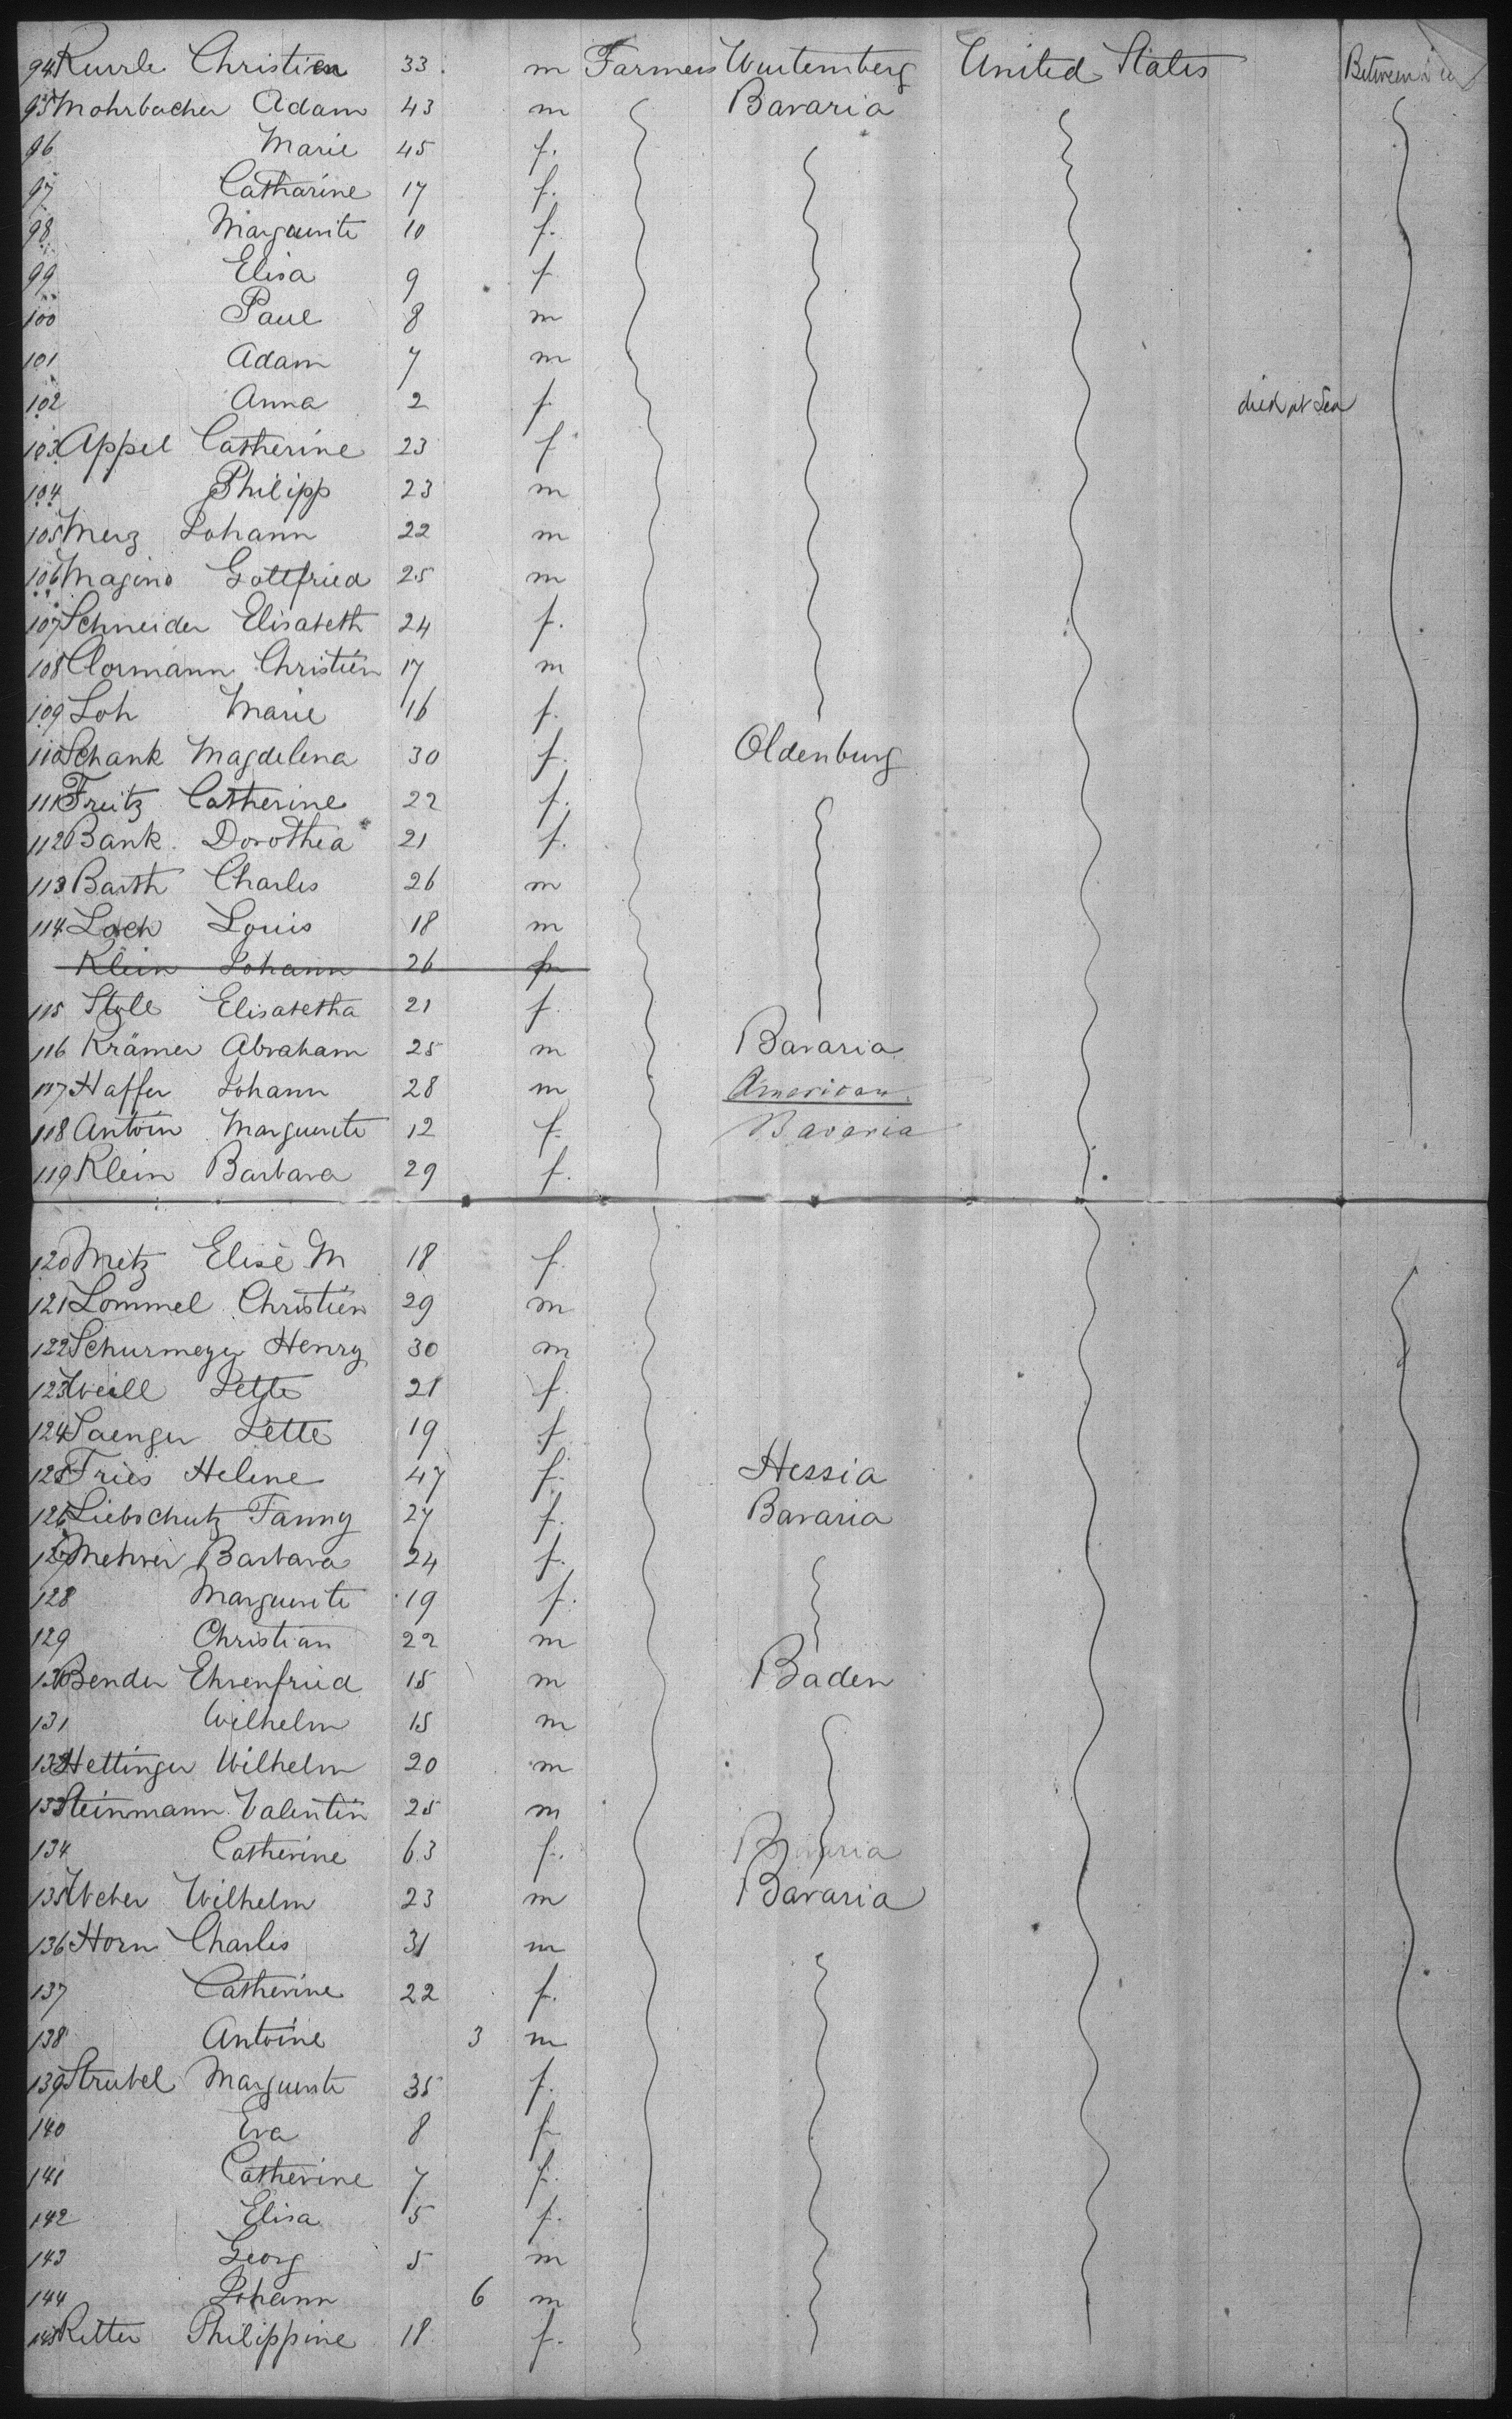 94 Kurrle Christian 33 m Farmers Wurtemberg United States Between
95 Mohrbacher Adam 43 m Bavaria
96 Marie 45 f.
97 Catharine 17 f.
98 Marguerite 10 f.
99 Elisa 9 f
100 Paul 8 m
101 Adam 7 m
102 Anna 2 f. died at Sea
103 Appel Catherine 23 f
104 Philipp 23 m
105 Merz Johann 22 m
106 Magino Gottfried 25 m
107 Schneider Elisabeth 24 f.
108 Clormann Christien 17 m
109 Loh Marie 16 f.
110 Schank Magdelena 30 f.
Oldenburg
111 Freitz Catherine 22 f.
112 Bank Dorothea 21 f.
113 Barth Charles 26 m
114 Loch Louis 18 m
Klein Johann 26
115 Stole Elisabetha 21 f.
116 Krämer Abraham 25 m Bavaria
117 Haffer Johann 28 m American
118 Antoin Marguerite 12 f. Bavaria
119 Klein Barbara 29 f.
120 Metz Elise M 18 f.
121 Lommel Christien 29 m
122 Schurmeyer Henry 30 m
123 Weill Jette 21 f.
124 Saenger Jette 19 f.
125 Fries Helene 47 f. Hessia
126 Liebschutz Fanny 27 f. Bavaria
127 Mehrer Barbara 24 f.
128 Marguerite 19 f.
129 Christian 22 m
130 Bender Ehrenfried 15 m Baden
131 Wilhelm 15 m
132 Hettinger Wilhelm 20 m
133 Steinmann Valentin 25 m
134 Catherine 63 f. Bavaria
135 Weber Wilhelm 23 m Bavaria
136 Horn Charles 31 m
137 Catherine 22 f.
138 Antoine 3 m
139 Strubel Marguerite 35 f.
140 Eva 8 f
141 Catherine 7 f.
142 Elisa 5 f.
143 Georg 5 m
144 Johann 6 m
145 Ritter Philippine 18 f.